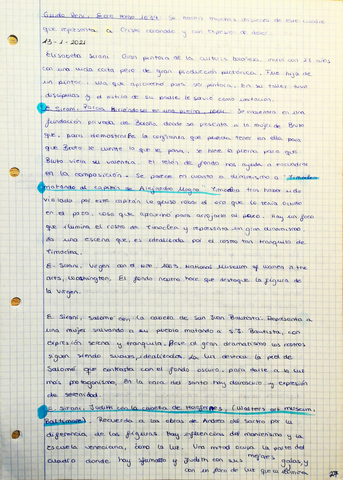 Guido Reni, Ecce homo 1639. Se hacen muchas versiones de este cuadro
que representa a Cristo coronado y con expresión de dolor.
13-1-2021
Elisabetta Sirani. Gran pintora de la cultura boloñesa, murió con 27 años
con una vida corta pero de gran producción pictórica. Fue hija de
un pintor, que aprovechó para ser pintora. En su taller tuvo
discípulas y el estilo de su padre le sirvió como
E. Sirani, Porcia hiriéndose en una pierna, 1664. Se encuentra en una
fundación privada de Bolonia donde se presenta a la mujer de Bruto
que, para demostrarle la confianza que puede tener en ella para
que Bruto le cuente lo que le pasa, se hiere la pierna para que
Bruto viera su valentía. El telón de fondo nos ayuda a
en la composición. Se parece en cuanto a dinamismo a Timoclea
matando al capitán de Alejandro Magno. Timoclea tras haber sido
violada por este capitán le
en el pozo, cosa que aprovechó para arrojarle al pozo. Hay un foco
que ilumina el rostro de Timoclea y representa un gran dinamismo
de una escena que es idealizada por el rostro tan tranquilo de
Timoclea.
E. Sirani, Virgen con el niño, 1663, National Museum of Women in the
Arts, Washington. El fondo neutro hace que destaque la figura de
la Virgen.
E. Sirani, Salomé con la cabeza de San Juan Bautista. Representa a
una mujer salvando a su pueblo matando a S.J. Bautista, con
expresión serena y tranquila. Pese al gran dramatismo los rostros
siguen siendo suaves, idealizados. La luz destaca la piel de
Salomé que contrasta con el fondo oscuro, para darle a la luz
más protagonismo. En la cara del santo hay claroscuro y expresión
de serenidad.
E. Sirani, Judith con la cabeza de Holofernes, (Walters art museum,
Baltimore). Recuerda a las obras de Andrea del Sarto por la
diferencia de las figuras. Hay influencia del manierismo y la
escuela veneciana, como la luz. Una mitad ocupa la parte del
cuadro donde hay y Judith con sus mejores galas, y
con un foco de luz que la ilumina
27